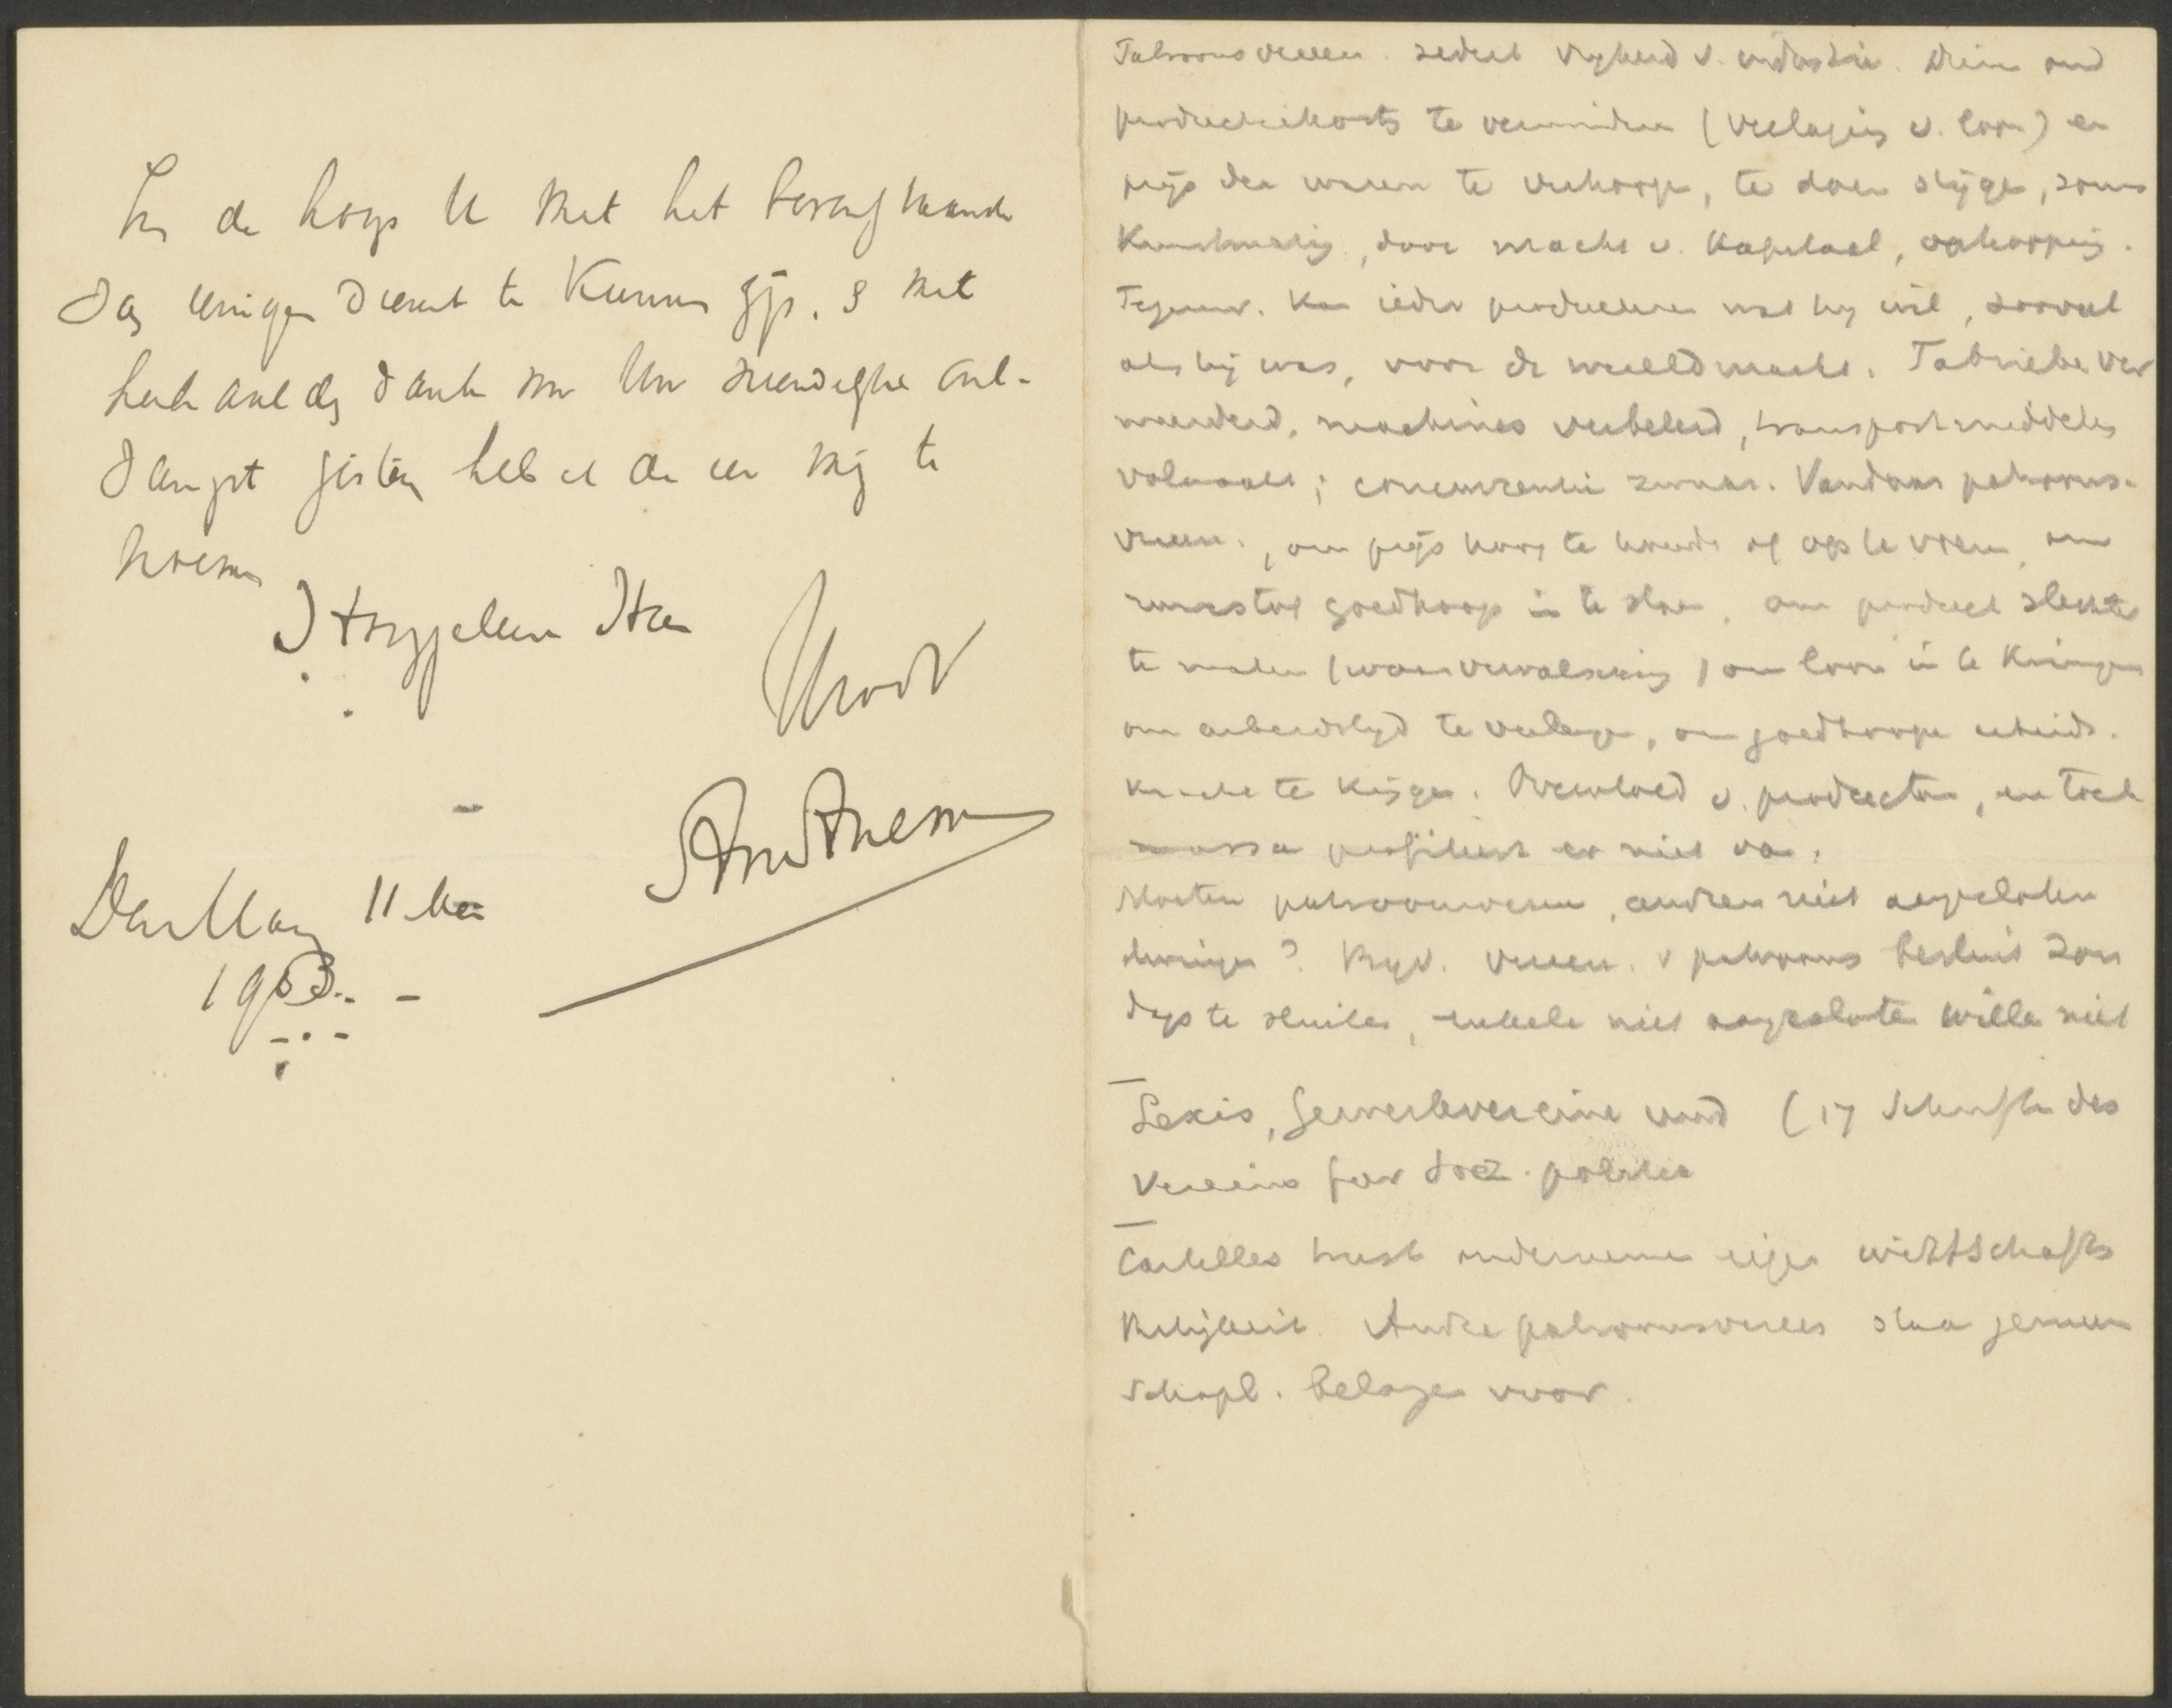 In de hoop U met het bovenstaande
enigen dienst te kunnen zijn, & met
dank voor Uw
heb ik de eer mij te
noemen
Den Haag 11 Mei
1903.
Patroonsvereen. sedert vrijheid v. industrie. Dienen om
productiekosten te verminderen (verlaging v. loon) en
prijs der waren te verhoogen, te doen stijgen, soms
kunstmatig, door macht v. kapitaal, opkooping.
Tegenw. kan ieder produceeren wat hij wil, zooveel
als hij wil, voor de wereldmarkt. Fabrieken ver
meerderd, machines verbeterd, transportmiddelen
volmaakt; concurrentie zwaar. Vandaar patroons-
vereen., om prijs hoog te houden of op te voeren, om
grondstof goedkoop in te slaan, om product slechter
te maken (warenvervalsching) om loon in te krimpen
om arbeidstijd te verlengen, om goedkoope arbeids-
kracht te krijgen. Overvloed v. producten, en toch
massa profiteert er niet van.
Moeten patroonsvereen, andren niet aangesloten
dwingen? Bijv. vereen. v patroons besluit Zon
dags te sluiten, enkele niet aangesloten willen niet
Lexis, Gewerkvereine und (17 Schriften des
Vereins fur Soz. politik
Cartelles trusts ondernemen eigen wirtschafts
Andre patroonsvereen staan gemeen
schapl. belangen voor.